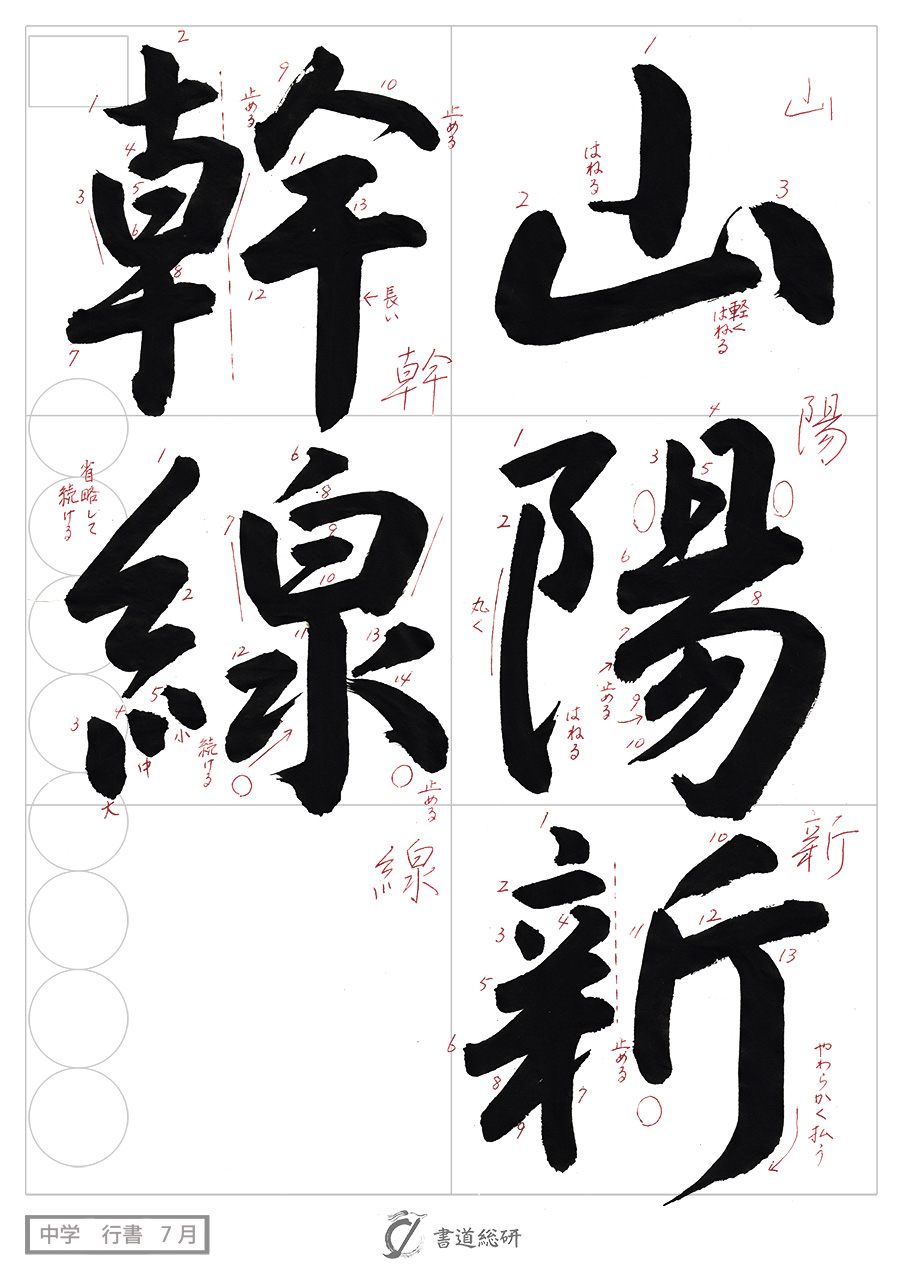 山陽新
幹線
山
1
2
3
はねる
軽く
はねる
陽
1
2
3
4
5
6
7
8
9
10
丸く
はねる
止める
新
1
2
3
4
5
6
7
8
9
10
11
12
13
止める
やわらかく払う
幹
1
2
3
4
5
6
7
8
9
10
11
12
13
止める
止める
長い
線
1
2
3
4
5
6
7
8
9
10
11
12
13
14
省略して
続ける
大
中
小
続ける
止める
中学 行書 7月
書道総研